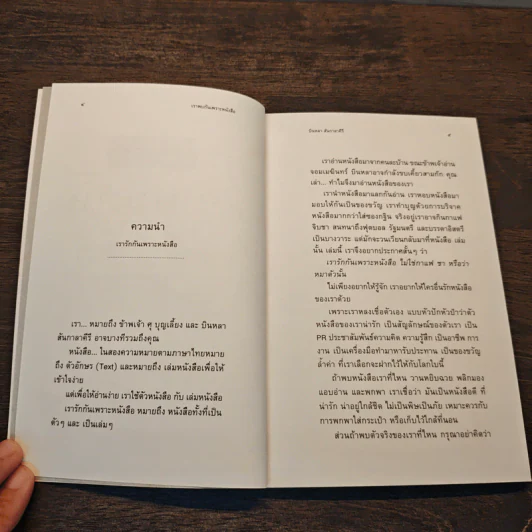 ๔
เราพบกันเพราะหนังสือ
ความนำ
เรารักกันเพราะหนังสือ
เรา... หมายถึง ข้าพเจ้า ศุ บุญเลี้ยง และ บินหลา
สันกาลาคีรี อาจบางทีรวมถึงคุณ
หนังสือ... ในสองความหมายตามภาษาไทยหมาย
ถึง ตัวอักษร (Text) และหมายถึง เล่มหนังสือเพื่อให้
เข้าใจง่าย
แต่เพื่อให้อ่านง่าย เราใช้ตัวหนังสือ กับ เล่มหนังสือ
เรารักกันเพราะหนังสือ หมายถึง หนังสือทั้งที่เป็น
ตัวๆ และ เป็นเล่มๆ
บินหลา สันกาลาคีรี
๕
เราอ่านหนังสือมาจากคนละบ้าน ขณะข้าพเจ้าอ่าน
จอมเมฆินทร์ บินหลาอาจกำลังขบเคี้ยวสามก๊ก คุณ
เล่า... ทำไงจึงมาอ่านหนังสือของเรา
เรานำหนังสือมาแลกกันอ่าน เราหอบหนังสือมา
มอบให้กันเป็นของขวัญ เราทำบุญด้วยการบริจาค
หนังสือมากกว่าใส่ซองกฐิน จริงอยู่เราอาจกินกาแฟ
จิบชา สนทนาถึงฟุตบอล รัฐมนตรี และบรรดาอิสตรี
เป็นบางวาระ แต่มักจะวนเวียนกลับมาที่หนังสือ เล่ม
นั้น เล่มนี้ เราจึงอยากประกาศสั้นๆ ว่า
เรารักกันเพราะหนังสือ ไม่ใช่กาแฟ ชา หรือว่า
หมาตัวนั้น
ไม่เพียงอยากให้รู้จัก เราอยากให้ใครอื่นรักหนังสือ
ของเราด้วย
เพราะเราหลงเชื่อตัวเอง แบบหัวปักหัวปำว่าตัว
หนังสือของเราน่ารัก เป็นสัญลักษณ์ของตัวเรา เป็น
PR ประชาสัมพันธ์ความคิด ความรู้สึก เป็นอาชีพ การ
งาน เป็นเครื่องมือทำมาหารับประทาน เป็นของขวัญ
ล้ำค่า ที่เราเลือกจะฝากไว้ให้กับโลกใบนี้
ถ้าพบหนังสือเราที่ไหน วานหยิบฉวย พลิกมอง
แอบอ่าน และพกพา เราเชื่อว่า มันเป็นหนังสือดี ที่
น่ารัก น่าอยู่ใกล้ชิด ไม่เป็นพิษเป็นภัย เหมาะควรกับ
การพกพาใส่กระเป๋า หรือเก็บไว้ใกล้ที่นอน
ส่วนถ้าพบตัวจริงของเราที่ไหน กรุณาอย่าคิดว่า